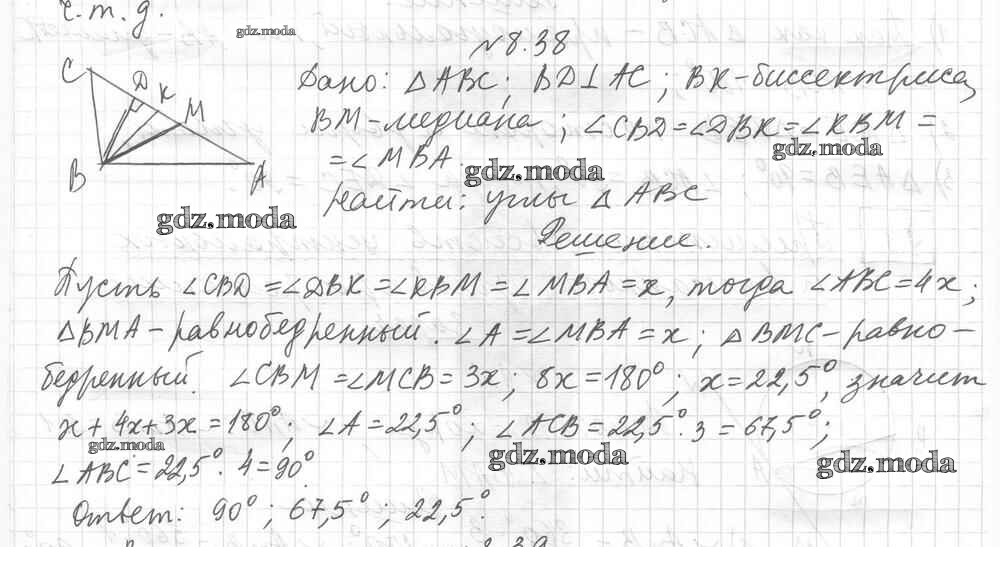 ч.т.д.
gdz.moda
№8.38
C
D
K
M
B
A
Дано: △ABC; BD⊥AC; BK-биссектриса,
BM-медиана; ∠CBD=∠DBK=∠KBM=
=∠MBA.
gdz.moda
gdz.moda
Найти: углы △ABC
gdz.moda
Решение.
Пусть ∠CBD=∠DBK=∠KBM=∠MBA=x, тогда ∠ABC=4x;
△BMA-равнобедренный. ∠A=∠MBA=x; △BMC-равно-
бедренный. ∠CBM=∠MCB=3x; 8x=180°; x=22,5°, значит
x+4x+3x=180°; ∠A=22,5°; ∠ACB=22,5°·3=67,5°;
gdz.moda
gdz.moda
gdz.moda
∠ABC=22,5°·4=90°.
Ответ: 90°; 67,5°; 22,5°.